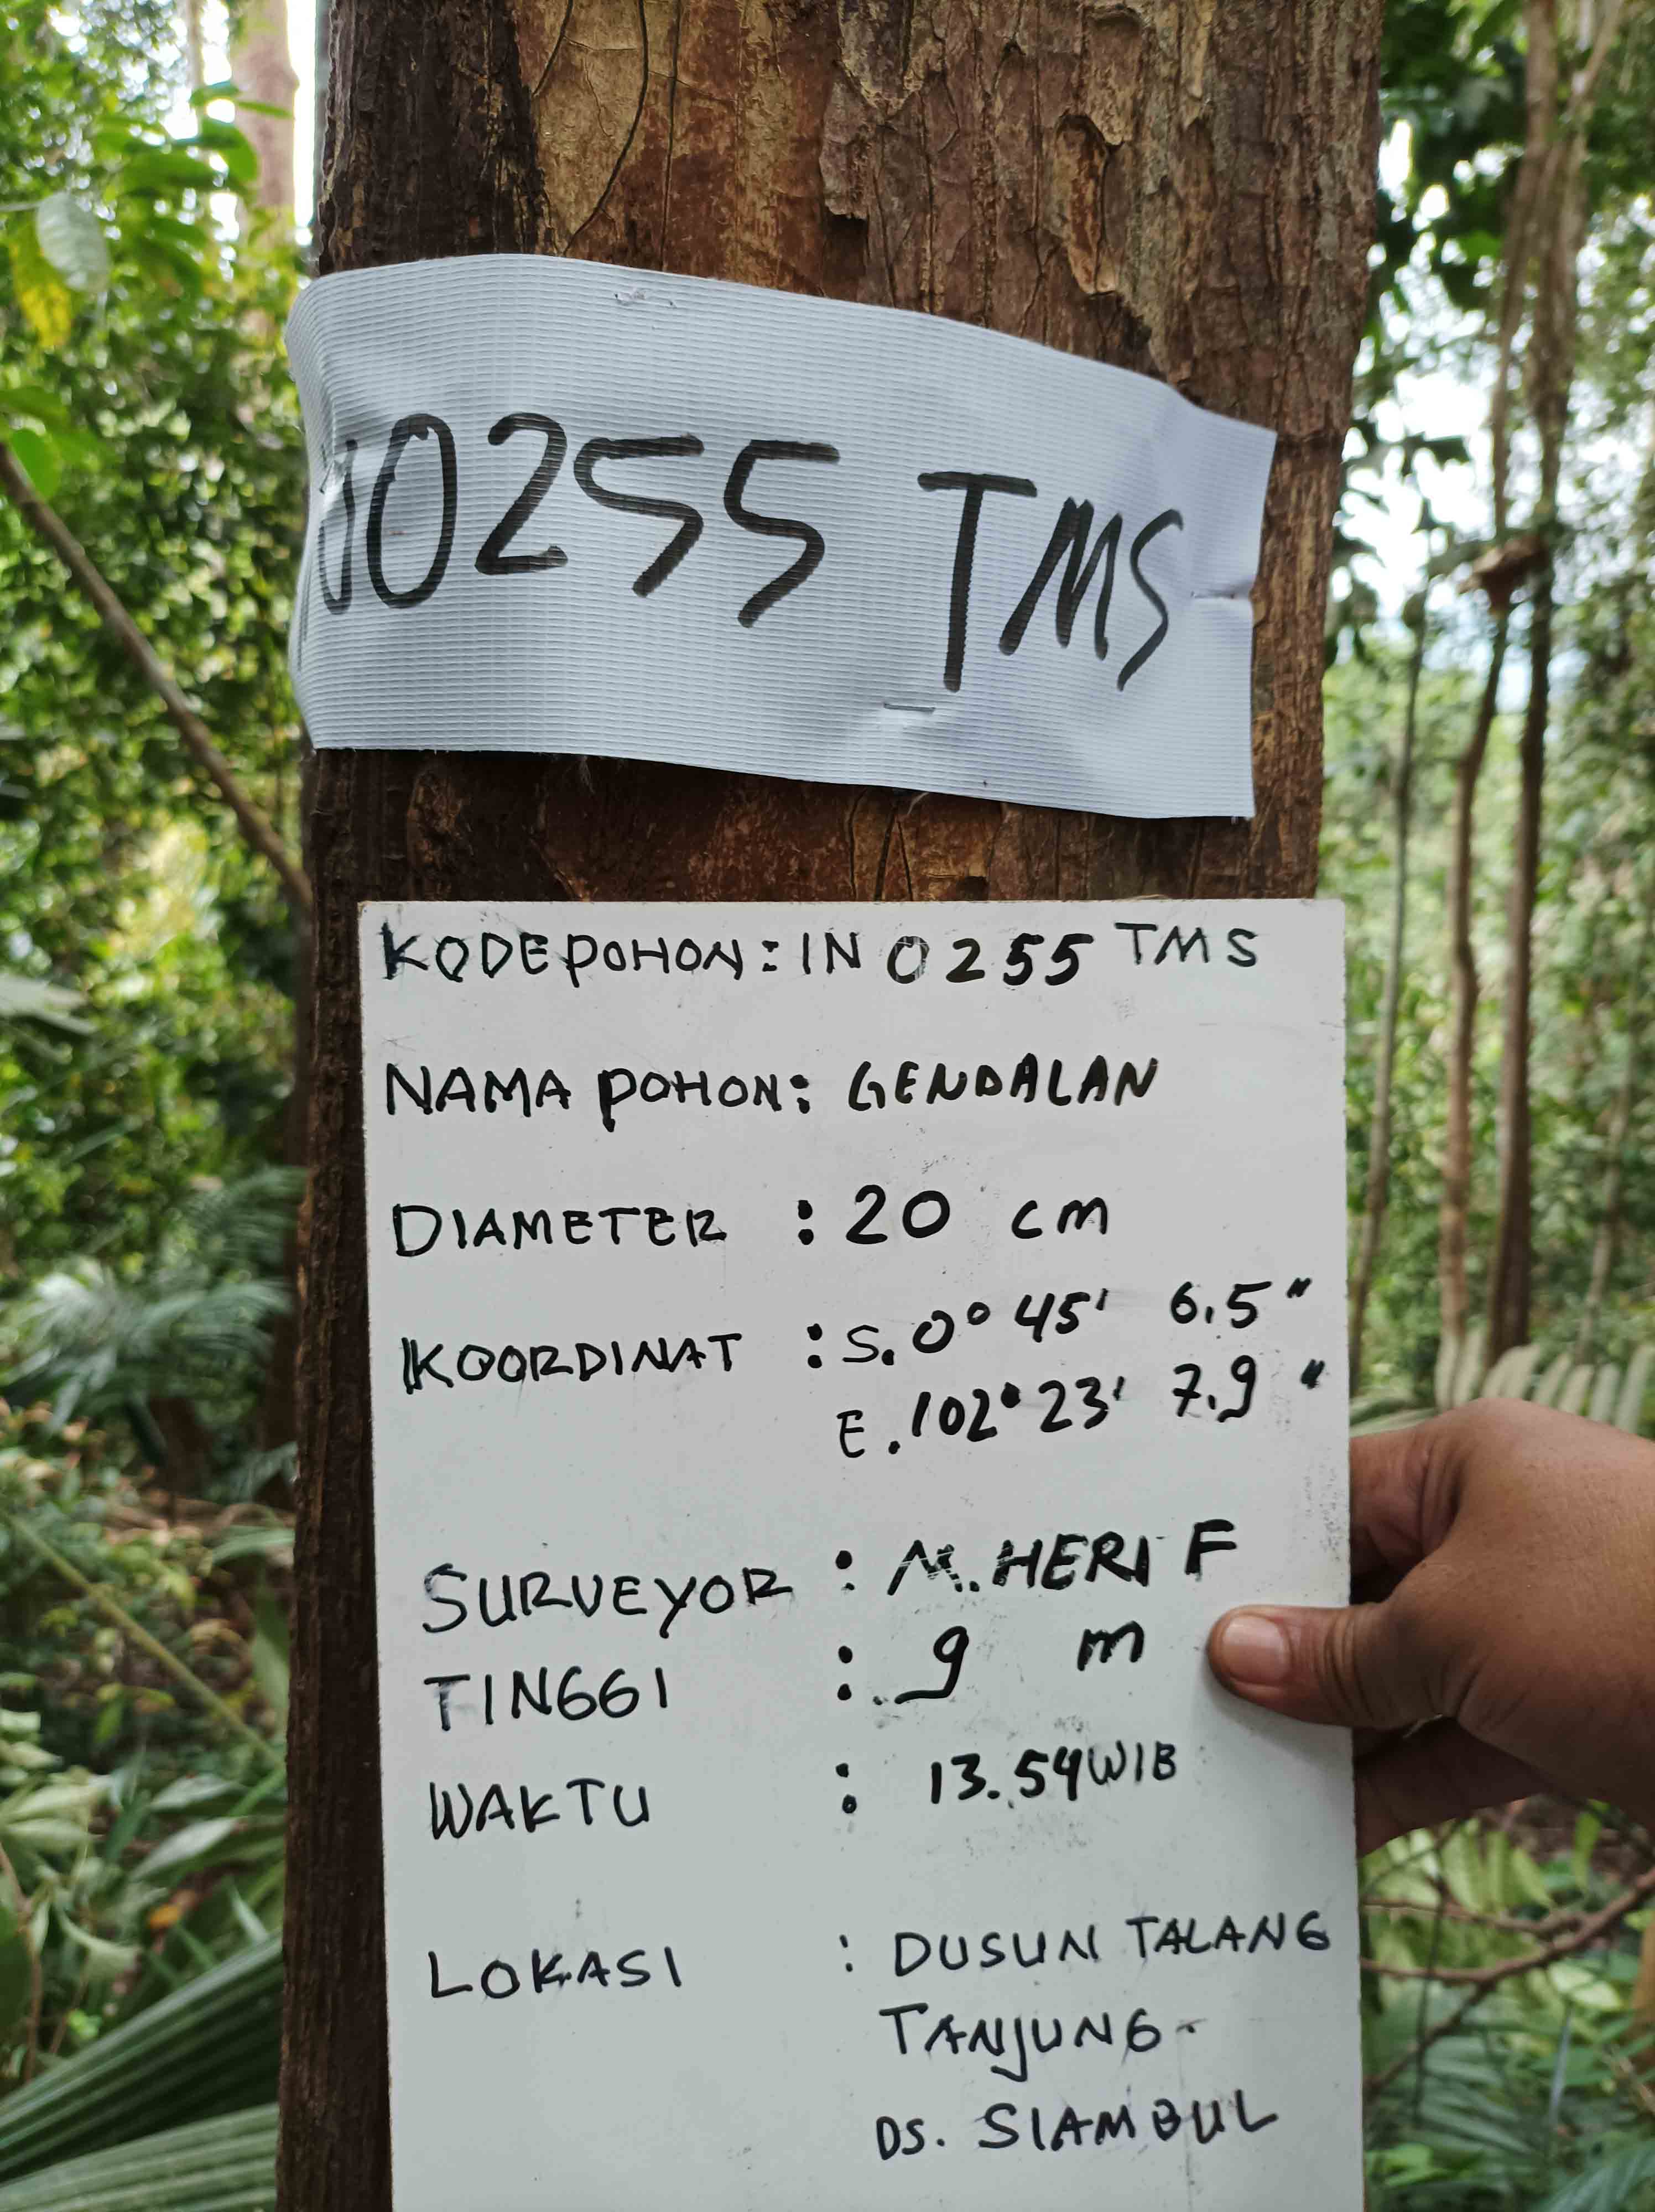 0255 TMS
KODE POHON : IN 0255 TMS
NAMA POHON : GENDALAN
DIAMETER : 20 cm
KOORDINAT : S. 0° 45' 6.5"
E. 102° 23' 7.9"
SURVEYOR : M. HERI F
TINGGI : 9 m
WAKTU : 13.54 WIB
LOKASI : DUSUN TALANG
TANJUNG.
DS. SIAMBUL